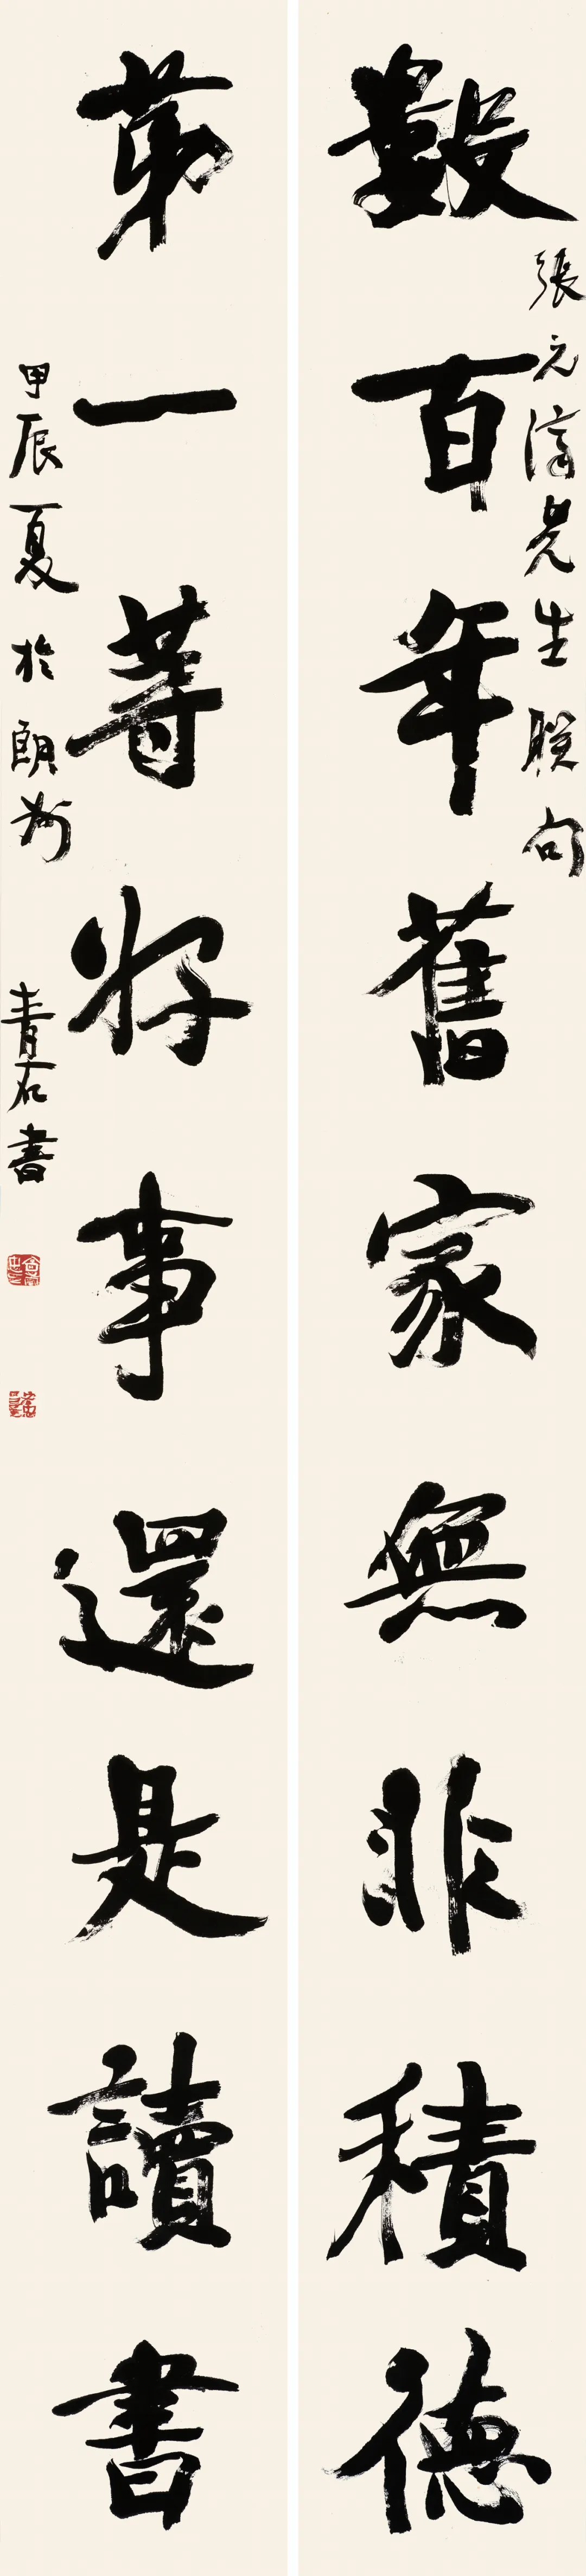 數百年舊家無非積德
張元濟先生聯句
第一等好事還是讀書
甲辰夏於朗州 青石書